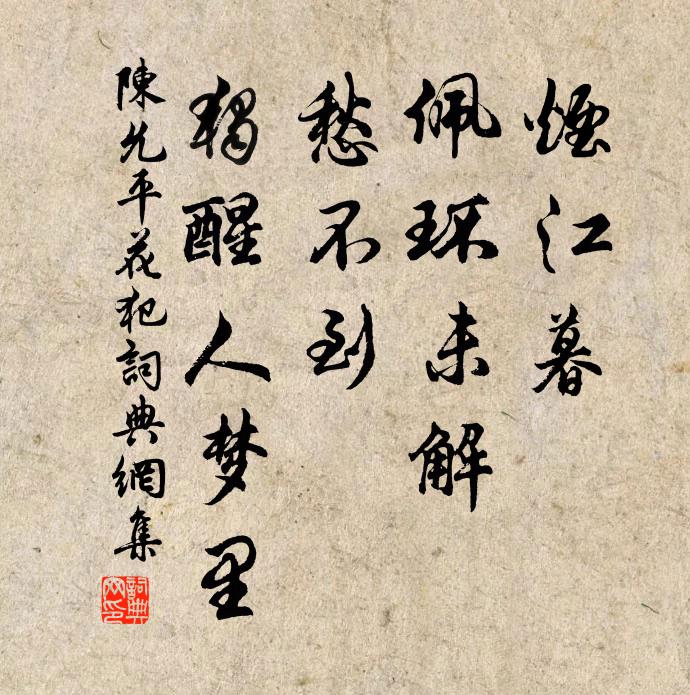 煙江暮
佩环未解
愁不到
独醒人梦里
陳允平花犯詞典網集
詞典网印